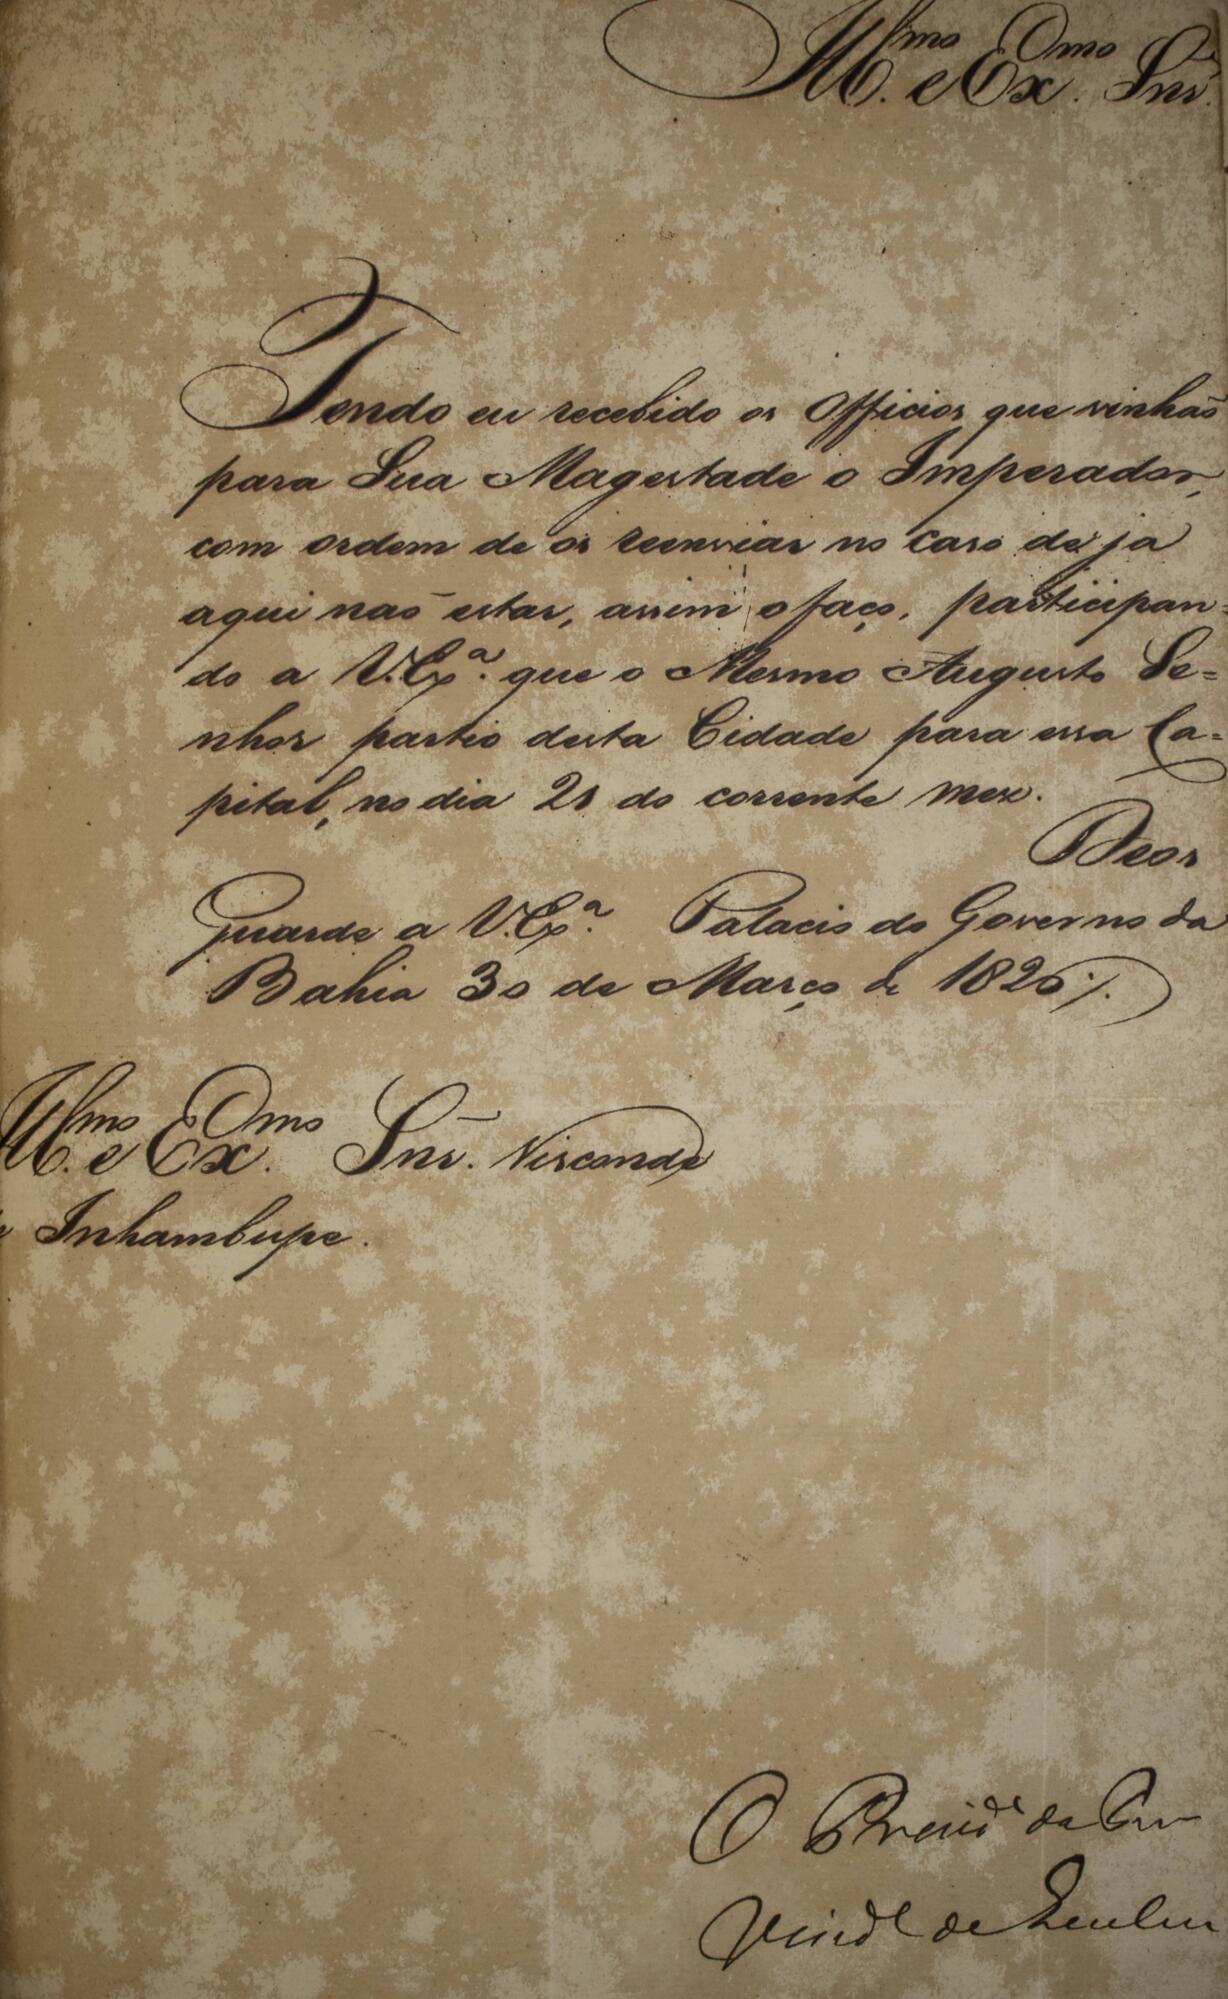 Ill.mo e Ex.mo Snr.
Tendo eu recebido os Officios que vinhaõ
para Sua Magestade o Imperador,
com ordem de os reenviar no caso de ja
aqui naõ estar, assim o faço, participan-
do a V. Ex.a que o Mesmo Augusto Se-
nhor partio desta Cidade para essa Ca-
pital, no dia 21 do corrente mez.
Deos
Guarde a V. Ex.a Palacio do Governo da
Bahia 30 de Março de 1826
Ill.mo e Ex.mo Snr. Visconde
Inhambupe.
O Presid.e da
de